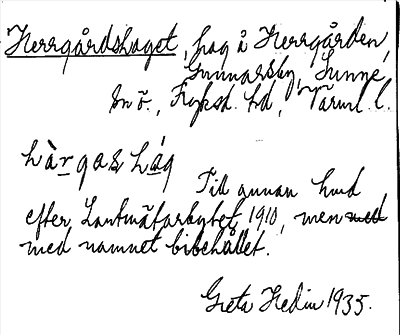 Herrgårdshaget, hag å Herrgården,
Gunnarsby, Sunne,
sn ö., Fryksd. hd, Värml. l.
hàrgas hág
Till annan hmd
efter Lantmätarbytet 1910, men med
med namnet bibehållet.
Greta Hedin 1935.